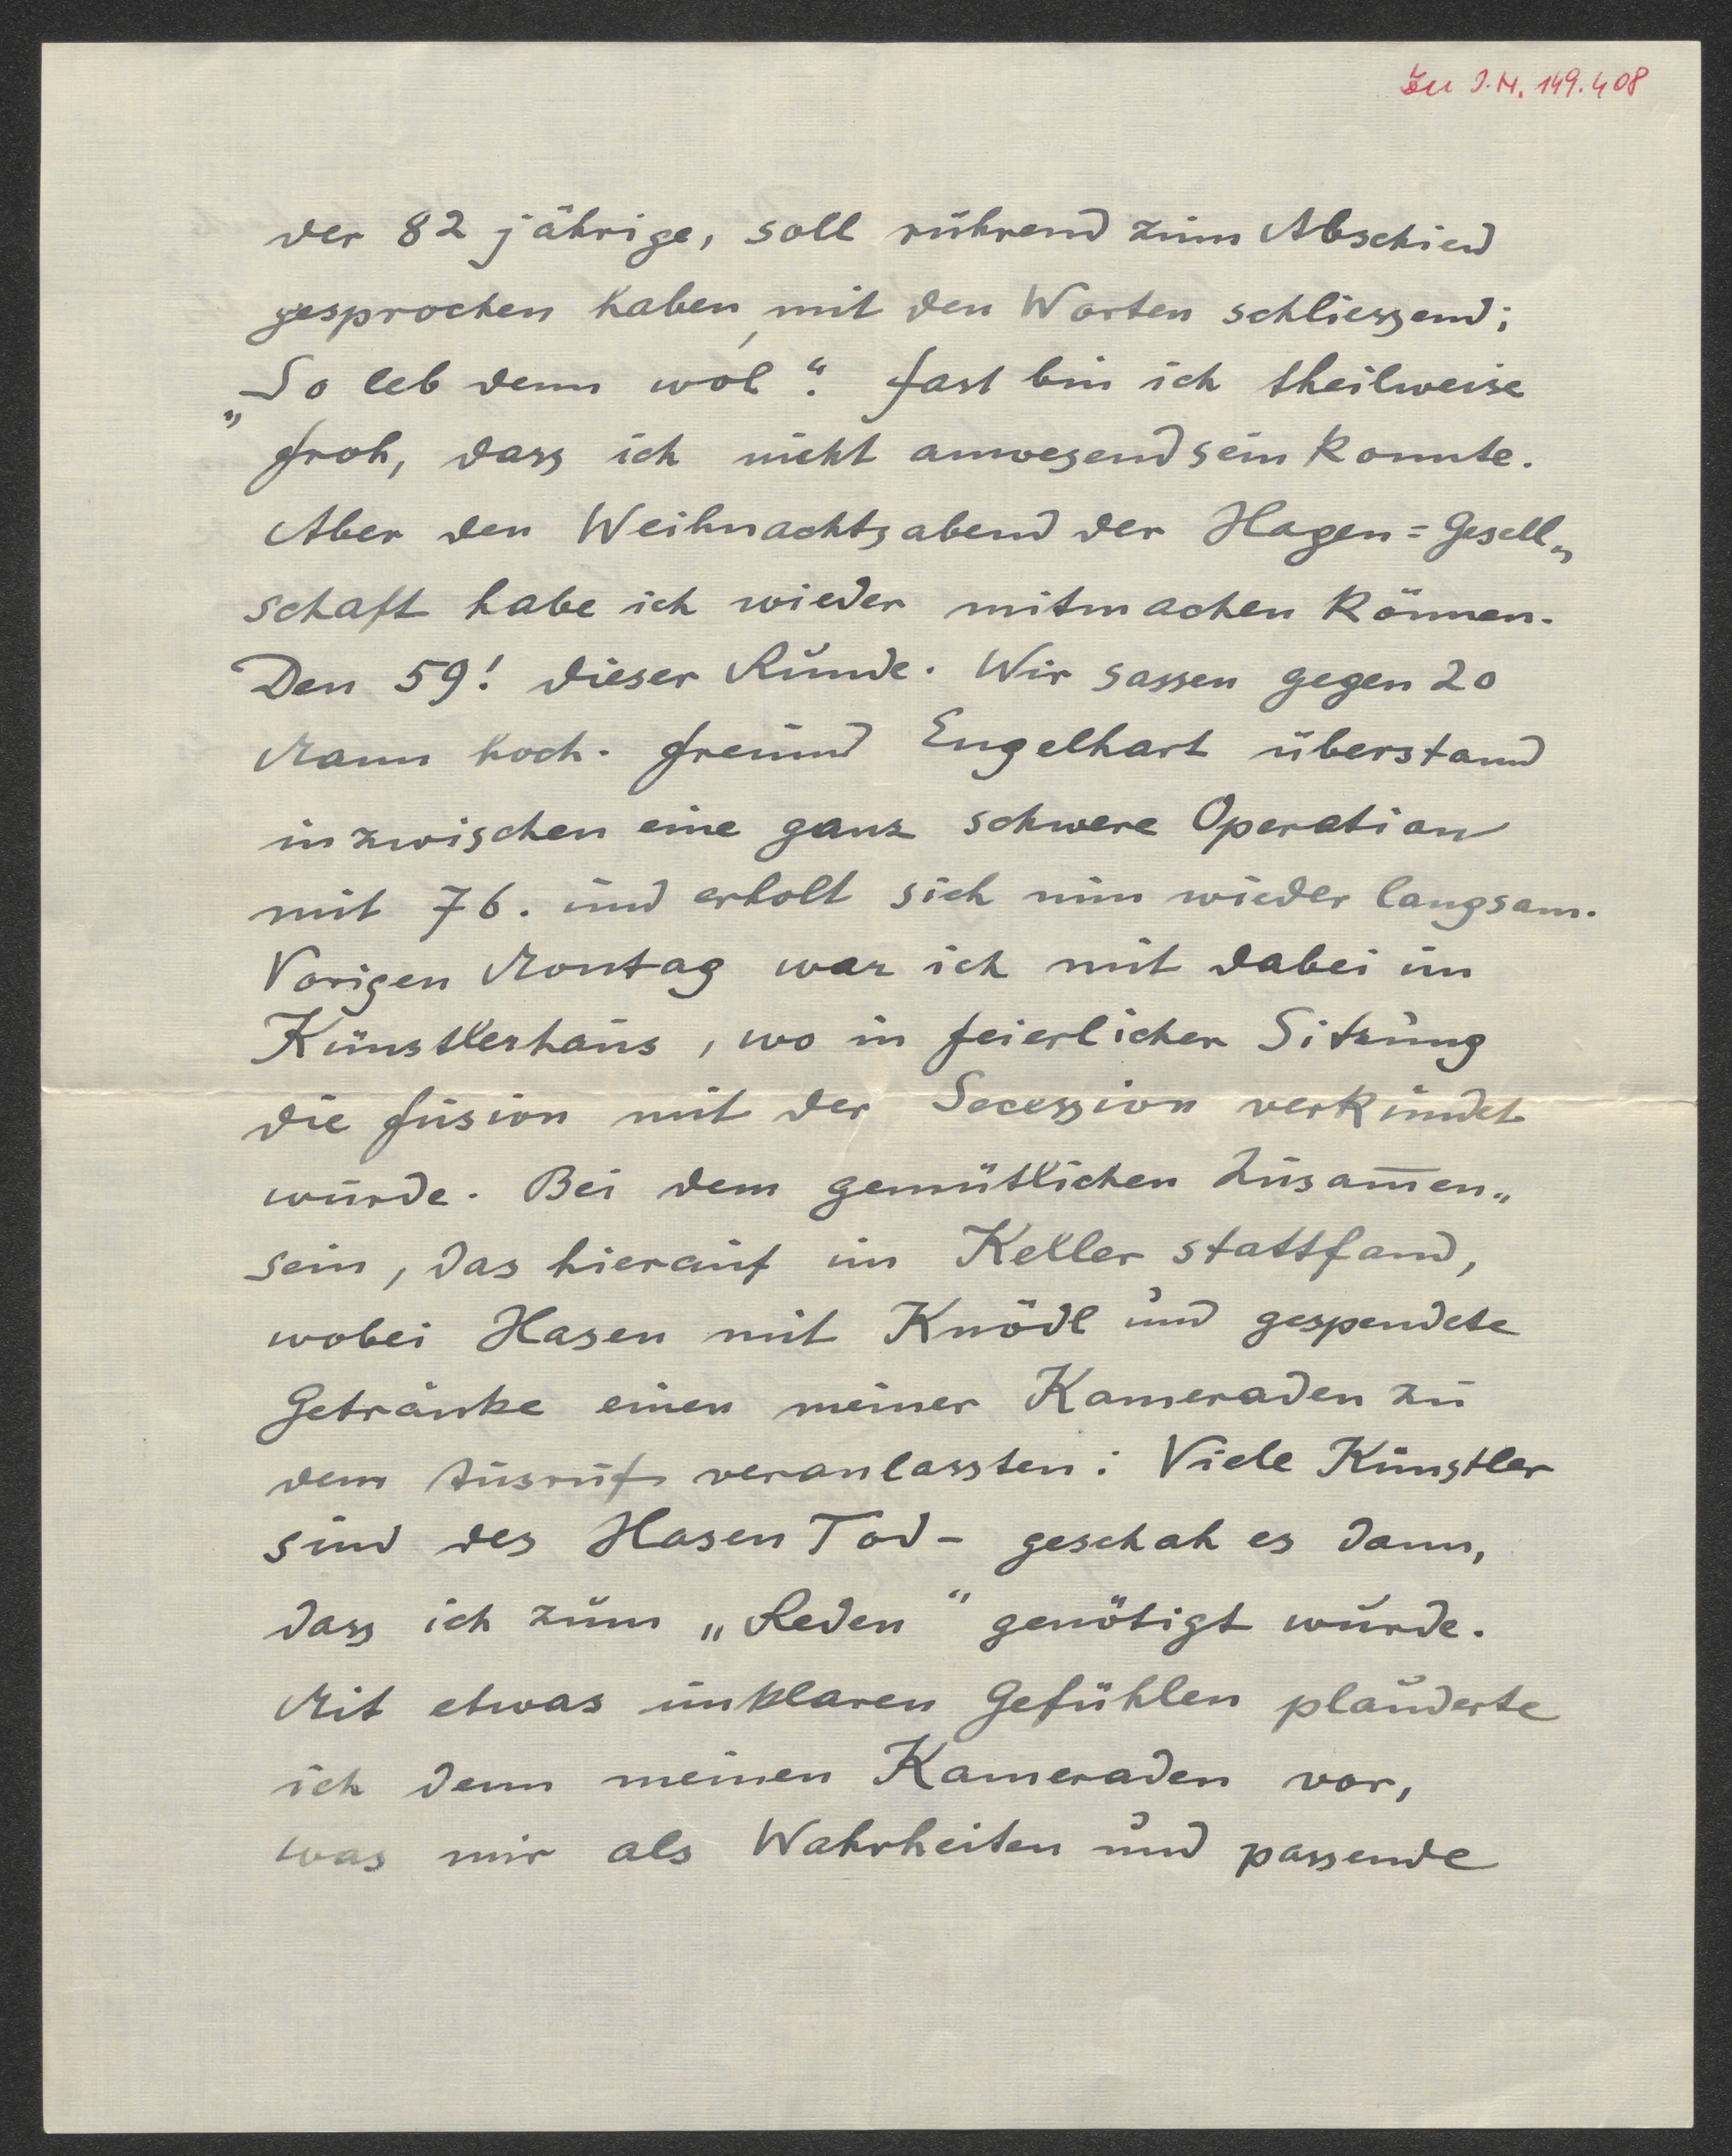 Zu I.N. 149.408
der 82 jährige, soll rührend zum Abschied
gesprochen haben, mit den Worten schliessend;
„So leb denn wol“. fast bin ich theilweise
froh, dass ich nicht anwesend sein konnte.
Aber den Weihnachtsabend der Hagen=Gesell„
schaft habe ich wieder mitmachen können.
Den 59! dieser Runde. Wir sassen gegen 20
Mann hoch. freund Engelhart überstand
inzwischen eine ganz schwere Operation
mit 76. und erholt sich nun wieder langsam.
Vorigen Montag war ich mit dabei im
Künstlerhaus, wo in feierlicher Sitzung
die fusion mit der Secession verkündet
wurde. Bei dem gemütlichen Zusam̅en„
sein, das hierauf im Keller stattfand,
wobei Hasen mit Knödl und gespendete
Getränke einen meiner Kameraden zu
dem Ausrufe veranlassten: Viele Künstler
sind des Hasen Tod – geschah es dann,
dass ich zum „Reden“ genötigt wurde.
Mit etwas unklaren Gefühlen plauderte
ich denn meinen Kameraden vor,
was mir als Wahrheiten und passende